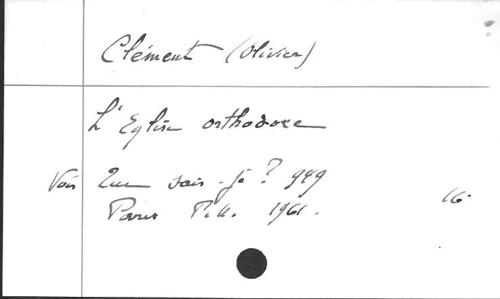 Clément (Olivier)
L'Eglise orthodoxe
Voir Que sais-je? 949
Paris P.U. 1961.
16.